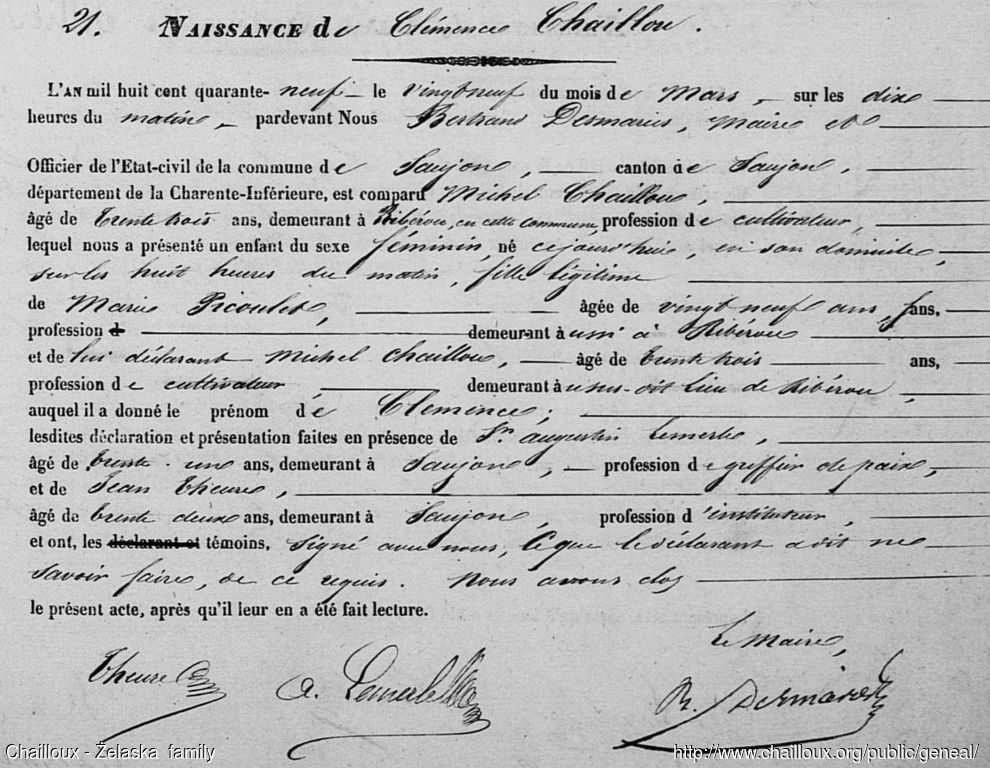 21. NAISSANCE de Clémence Chaillou.
L'AN mil huit cent quarante-neuf le vingt neuf du mois de Mars, sur les dix
heures du matin, pardevant Nous Bertrand Desmaries, Maire et
Officier de l'Etat-civil de la commune de Saujon, canton de Saujon,
département de la Charente-Inférieure, est comparu Michel Chaillou,
âgé de trente trois ans, demeurant à Ribérou, en cette commune, profession de cultivateur,
lequel nous a présenté un enfant du sexe féminin, né cejourd'hui, en son domicile,
sur les huit heures du matin, fille légitime
de Marie Picoulet, âgée de vingt neuf ans, ans,
profession d demeurant à aussi à Ribérou
et de lui déclarant Michel Chaillou, âgé de trente trois ans,
profession de cultivateur demeurant à susdit lieu de Ribérou,
auquel il a donné le prénom de Clémence;
lesdites déclaration et présentation faites en présence de Sr. augustin Lemerle,
âgé de trente-un ans, demeurant à Saujon, profession de greffier de paix,
et de Jean Theure,
âgé de trente deux ans, demeurant à Saujon, profession d'instituteur,
et ont, les déclarant et témoins, signé avec nous, ce que le déclarant a dit ne
savoir faire, de ce requis. Nous avons clos
le présent acte, après qu'il leur en a été fait lecture.
Le Maire,
Theure A. Lemerle B. Desmaries
Chailloux - Želaska family http://www.chailloux.org/public/geneal/